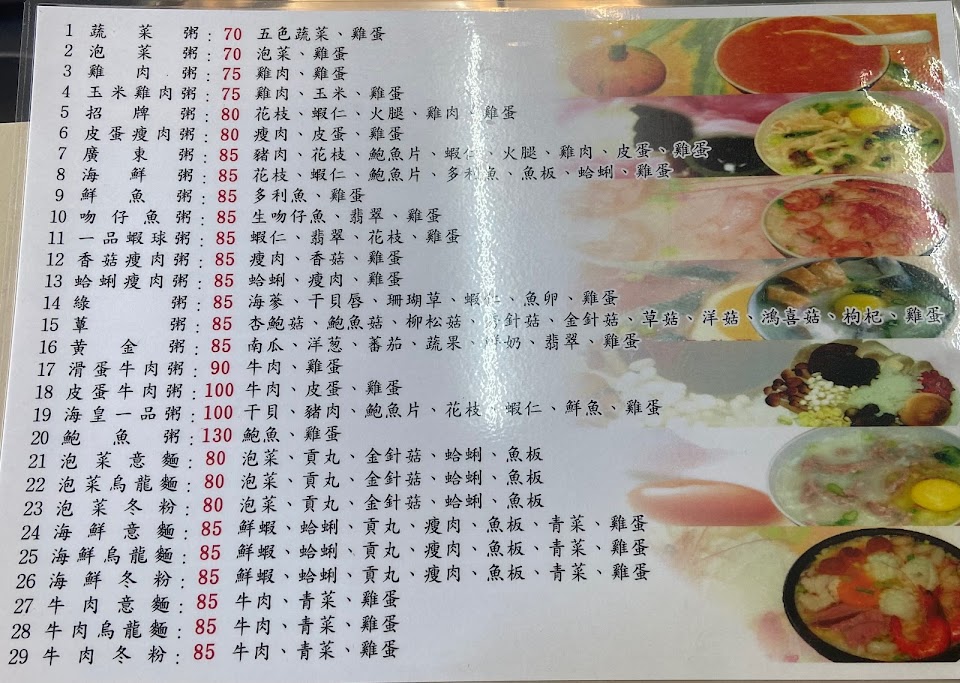 1 蔬菜粥：70 五色蔬菜、雞蛋
2 泡菜粥：70 泡菜、雞蛋
3 雞肉粥：75 雞肉、雞蛋
4 玉米雞肉粥：75 雞肉、玉米、雞蛋
5 招牌粥：80 花枝、蝦仁、火腿、雞肉、雞蛋
6 皮蛋瘦肉粥：80 瘦肉、皮蛋、雞蛋
7 廣東粥：85 豬肉、花枝、鮑魚片、蝦仁、火腿、雞肉、皮蛋、雞蛋
8 海鮮粥：85 花枝、蝦仁、鮑魚片、多利魚、魚板、蛤蜊、雞蛋
9 鮮魚粥：85 多利魚、雞蛋
10 吻仔魚粥：85 生吻仔魚、翡翠、雞蛋
11 一品蝦球粥：85 蝦仁、翡翠、花枝、雞蛋
12 香菇瘦肉粥：85 瘦肉、香菇、雞蛋
13 蛤蜊瘦肉粥：85 蛤蜊、瘦肉、雞蛋
14 綠粥：85 海蔘、干貝唇、珊瑚草、蝦仁、魚卵、雞蛋
15 蕈粥：85 杏鮑菇、鮑魚菇、柳松菇、針菇、金針菇、草菇、洋菇、鴻喜菇、枸杞、雞蛋
16 黃金粥：85 南瓜、洋葱、蕃茄、蔬果、奶、翡翠、雞蛋
17 滑蛋牛肉粥：90 牛肉、雞蛋
18 皮蛋牛肉粥：100 牛肉、皮蛋、雞蛋
19 海皇一品粥：100 干貝、豬肉、鮑魚片、花枝、蝦仁、鮮魚、雞蛋
20 鮑魚粥：130 鮑魚、雞蛋
21 泡菜意麵：80 泡菜、貢丸、金針菇、蛤蜊、魚板
22 泡菜烏龍麵：80 泡菜、貢丸、金針菇、蛤蜊、魚板
23 泡菜冬粉：80 泡菜、貢丸、金針菇、蛤蜊、魚板
24 海鮮意麵：85 鮮蝦、蛤蜊、貢丸、瘦肉、魚板、青菜、雞蛋
25 海鮮烏龍麵：85 鮮蝦、蛤蜊、貢丸、瘦肉、魚板、青菜、雞蛋
26 海鮮冬粉：85 鮮蝦、蛤蜊、貢丸、瘦肉、魚板、青菜、雞蛋
27 牛肉意麵：85 牛肉、青菜、雞蛋
28 牛肉烏龍麵：85 牛肉、青菜、雞蛋
29 牛肉冬粉：85 牛肉、青菜、雞蛋